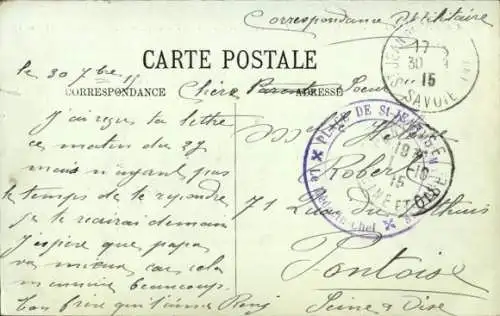 Correspondance Militaire
CARTE POSTALE
CORRESPONDANCE
ADRESSE
le 30 7bre 15
Chère
J'ai reçu ta lettre
ce matin du 27
mais n'ayant pas
le temps de te répondre
je le ferai demain
J'espère que papa
va mieux car cela
m'ennuie beaucoup.
Ton frère qui t'aime
Robert
71 Quai du Pothuis
Pontoise
Seine & Oise
17
30 9
15
SAVOIE
PLACE DE ST-JEAN
Le Médecin Chef
15
OISE